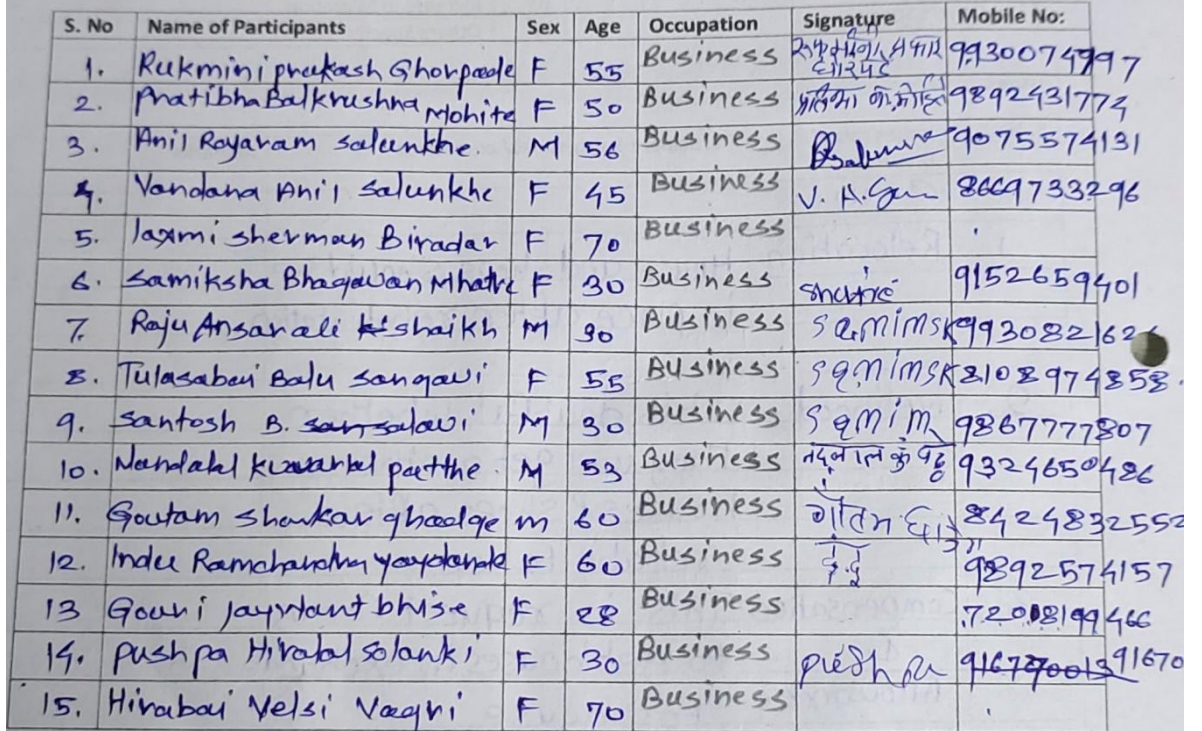 S. No Name of Participants Sex Age Occupation Signature Mobile No:
1. Rukmini prakash Ghorpade F 55 Business 9930074997
2. Pratibha Balkrushna Mohite F 50 Business 9892431774
3. Anil Rayaram salunkhe. M 56 Business 9075574131
4. Vandana Anil salunkhe F 45 Business V. A. 8669733296
5. laxmi sherman Biradar F 70 Business
6. Samiksha Bhagavan Mhatre F 30 Business 9152659401
7. Raju Ansarali shaikh M 30 Business sqmimsk 993082162
8. Tulasabai Balu sangavi F 55 Business sqmimsk 8108974858.
9. Santosh B. salavi M 30 Business sqmim 9867777807
10. Nandalal M 53 Business 9324650486
11. Goutam shankar ghadge m 60 Business गौतम 8424832552
12. Indu Ramchandra F 60 Business इंदु 9892574157
13 Gouri jaywant bhise F 28 Business 7208199466
14. pushpa Hiralal solanki F 30 Business 91670
15. Hirabai Velsi Vagri F 70 Business